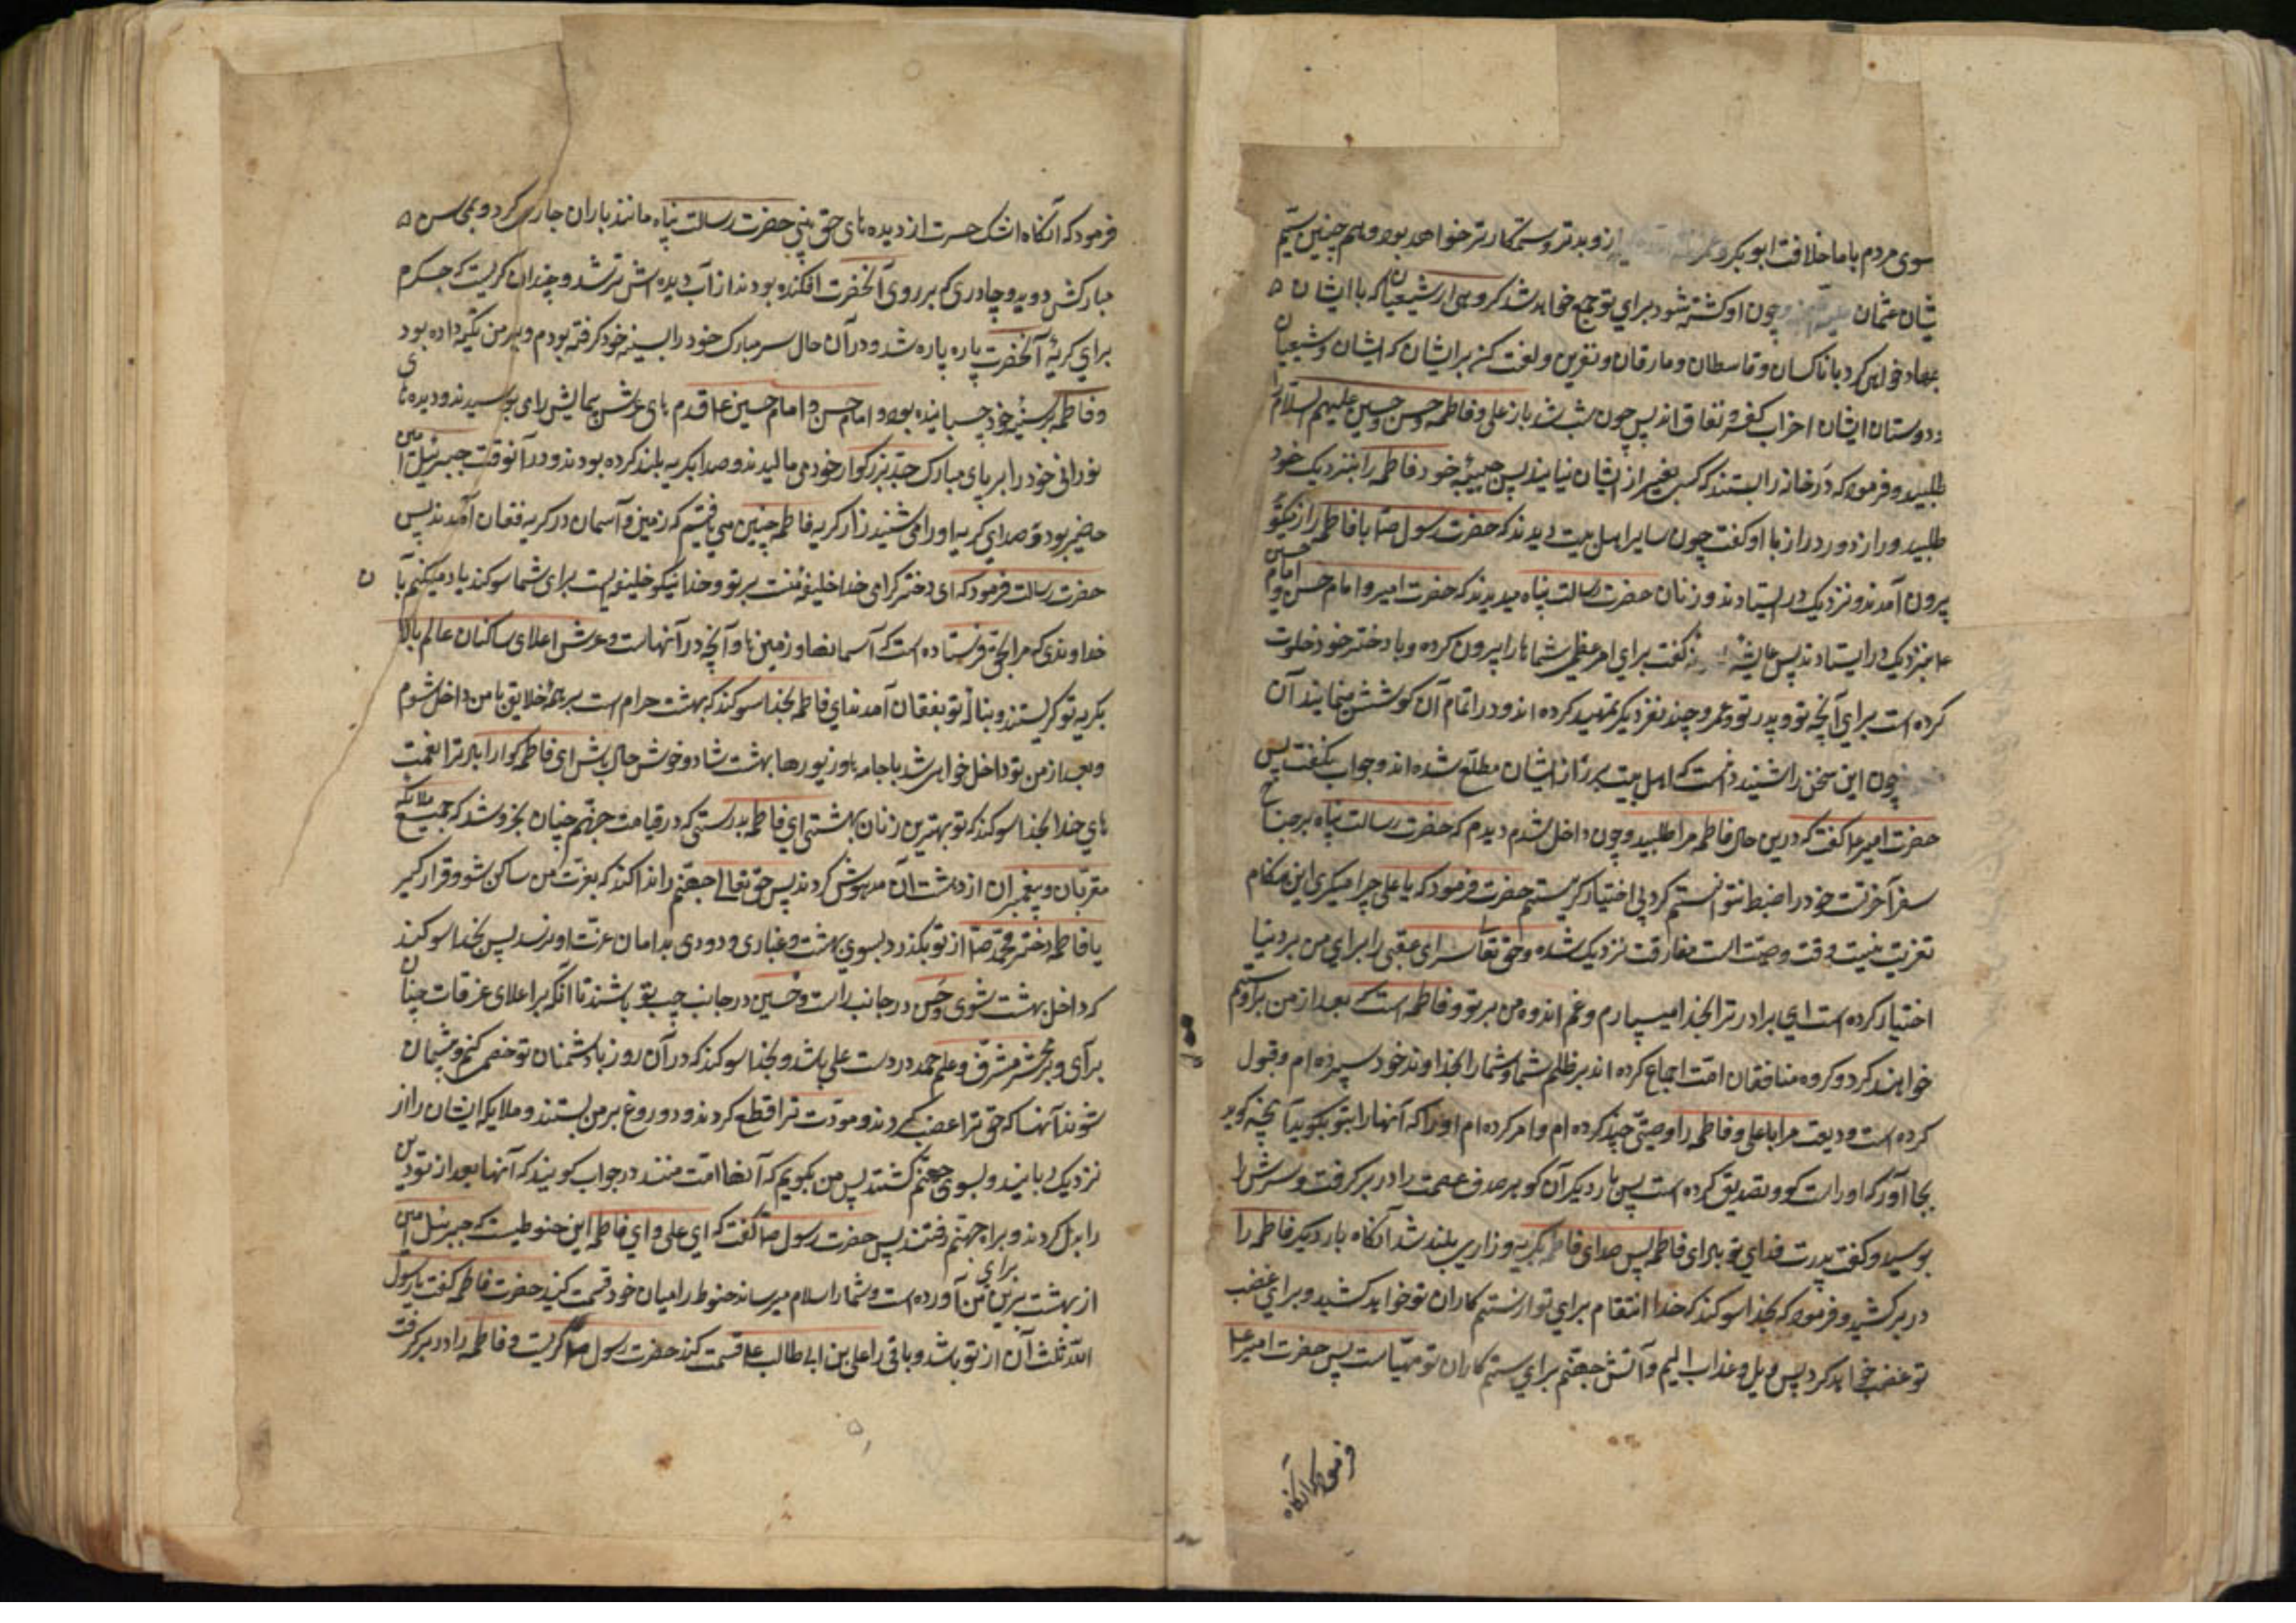 سوی مردم با ما خلافت ابو بکر و عمر از و بدتر و ستمکارتر خواهد بود و هم چنین ستیم
یشان عثمان و چون او کشته شود برای تو جمع خواهد شد کروهی از شیعیان که با ایشان
جهاد خواهی کرد با ناکسان و قاسطان و مارقان و نفرین و لعنت کن بر ایشان که ایشان و شیعیان
و دوستان ایشان احزاب کفر و نفاق اند پس چون شب شد باز علی و فاطمه و حسن و حسین علیهم السلام را
طلبید و فرمود که در خانه را بستند که کسی بغیر از ایشان نیاید پس حبیبهٔ خود فاطمه را بنزدیک خود
طلبید و راز دور دراز با او کفت چون سایر اهل بیت دیدند که حضرت رسول صا با فاطمه راز میکوید
بیرون آمدند و نزدیک در ایستادند و زنان حضرت رسالت پناه میدیدند که حضرت امیر و امام حسن و امام حسین
ع بنزدیک در ایستادند پس عایشه کفت برای امر عظیم شما ها را بیرون کرده و با دختر خود خلوت
کرده است برای آنچه تو و پدر تو و عمر و چند نفر دیکر تمهید کرده اند و در اتمام آن کوشش مینمایند آن
چون این سخن را شنید دانست که اهل بیت بر راز ایشان مطلع شده اند و جواب نکفت پس
حضرت امیر ع کفت که درین حال فاطمه مرا طلبید و چون داخل شدم دیدم که حضرت رسالت پناه بر جناح
سفر آخرتست خود را ضبط نتوانستم کرد بی اختیار کریستم حضرت فرمود که یا علی چرا میکری این هنکام
تعزیت نیست وقت وصیت است مفارقت نزدیک شده و حق تعا سرای عقبی را برای من بر دنیا
اختیار کرده است ای برادر ترا بخدا میسپارم و غم اندوه من بر تو و فاطمه است که بعد از من بر او ستم
خواهند کرد و کروه منافقان امت اجماع کرده اند بر ظلم شما و شما را بخداوند خود سپرده ام و قبول
کرده است ودیعت مرا یا علی و فاطمه را وصیتی چند کرده ام و امر کرده ام او را که آنها را بتو بکوید آنچه کوید
بجا آور که او راست کو و تصدیق کرده است پس بار دیکر آن کوهر صدف عصمت را در بر کرفت و سرش را
بوسید و کفت پدرت فدای تو باد ای فاطمه پس صدای فاطمه بکریه و زاری بلند شد آنکاه بار دیکر فاطمه را
در بر کشید و فرمود که بخدا سوکند که خدا انتقام برای تو از ستم کاران تو خواهد کشید و برای غضب
تو غضب خواهد کرد پس ویل و عذاب الیم و آتش جهنم برای ستم کاران تو مهیاست پس حضرت امیر ع
فرمود که آنکاه
فرمود که آنکاه اشک حسرت از دیده های حق بین حضرت رسالت پناه مانند باران جاری کردید و بمحاسن
مبارکش دوید و چادری که بر روی آنحضرت افکنده بودند از آب دیده اش تر شد و چندان کریست که جکرم
برای کریهٔ آنحضرت پاره پاره شد و در آن حال سر مبارک خود را بسینه خود کرفته بودم و بر من تکیه داده بود
و فاطمه بر سینهٔ خود چسبانیده بود و امام حسن و امام حسین ع قدم های عرش پیمایش را می بوسیدند و دیده های
نورانی خود را بر پای مبارک جد بزرکوار خود می مالیدند و صدا بکریه بلند کرده بودند و در آنوقت جبرئیل امین
حاضر بود و صدای کریه او را می شنید از کریه فاطمه چنین می یافتیم که زمین و آسمان در کریه فغان آمدند پس
حضرت رسالت فرمود که ای دختر کرامی خدا خلیفه منست بر تو و خدا نیکو خلیفه ایست برای شما سوکند یاد میکنم با ن
خداوندی که مرا بحق فرستاده است که آسمانها و زمین ها و آنچه در آنهاست و عرش اعلای ساکنان عالم بالا
بکریه تو کریستند و بنالهٔ تو بفغان آمدند ای فاطمه بخدا سوکند که بهشت حرام است بر همهٔ خلایق تا من داخل شوم
و بعد از من تو داخل خواهی شد با جامه ها و زیورها بهشت شاد و خوش حال باش ای فاطمه کوارا باد ترا نعمت
های خدا بخدا سوکند که تو بهترین زنان بهشتی ای فاطمه بدرستی که در قیامت جهنم چنان بخروشد که جمیع ملایکه
مقربان و پیغمبران از دهشت آن مدهوش کردند پس حق تعالی جهنم را ندا کند که بعزت من ساکن شو و قرار کیر
یا فاطمه دختر محمد صا از تو بکذرد بسوی بهشت و غباری و دودی بدامان عزت او نرسد پس بخدا سوکند
که داخل بهشت شوی و حسن در جانب راست و حسین در جانب چپ تو باشند تا آنکه بر اعلای غرفات جنان
برآی و بر محشر مشرف و علم حمد در دست علی باشد و بخدا سوکند که در آن روز با دشمنان تو خصمی کنم و پشیمان
شوند آنها که حق ترا غصب کردند و مودت ترا قطع کردند و دروغ بر من بستند و ملایکه ایشان را از
نزدیک ربایند و بسوی جهنم کشند پس من بکویم که آنها امت منند در جواب کویند که آنها بعد از تو دین
را بدل کردند و براه جهنم رفتند پس حضرت رسول صا کفت که ای علی و ای فاطمه این حنوطیست که جبرئیل امین
از بهشت برین برای من آورده است و شما را سلام میرساند حنوط را میان خود قسمت کنید حضرت فاطمه کفت یا رسول
الله ثلث آن از تو باشد و باقی را علی بن ابی طالب ع قسمت کند حضرت رسول صا کریست و فاطمه را در بر کرفت